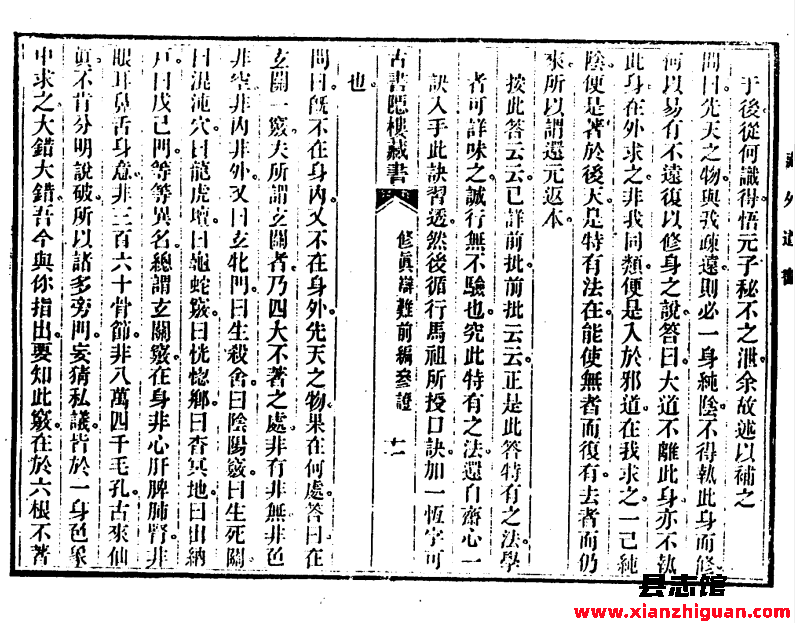 藏外道書
于後從何識得悟元子秘不之泄余故述以補之
問曰先天之物與我疎遠則必一身純陰不得執此身而修
何以易有不遠復以修身之說答曰大道不離此身亦不執
此身在外求之非我同類便是入於邪道在我求之一己純
陰便是著於後天是特有法在能使無者而復有去者而仍
來所以謂還元返本
按此答云云已詳前批前批云云正是此答特有之法學
者可詳味之誠行無不驗也究此特有之法還自齋心一
訣入手此訣習透然後循行馬祖所授口訣加一恆字可
古書隱樓藏書
修眞辯難前編參證
十二
也
問曰旣不在身內又不在身外先天之物果在何處答曰在
玄關一竅夫所謂玄關者乃四大不著之處非有非無非色
非空非內非外又曰玄牝門曰生殺舍曰陰陽竅曰生死關
曰混沌穴曰龍虎壇曰龜蛇竅曰恍惚鄉曰杳冥地曰出納
戸曰戊己門等等異名總謂玄關竅在身非心肝脾肺腎非
眼耳鼻舌身意非三百六十骨節非八萬四千毛孔古來仙
眞不肯分明說破所以諸多旁門妄猜私議皆於一身色象
中求之大錯大錯吾今與你指出要知此竅在於六根不著
县志馆
www.xianzhiguan.com